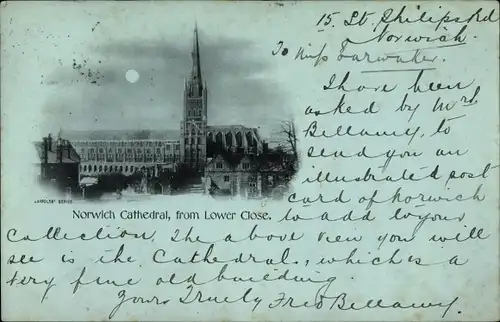 15. St. Philips Rd
Norwich.
To Miss Farwater.
I have been
asked by Mrs
Bellamy, to
send you an
illustrated post
card of Norwich
to add to your
collection. The above view you will
see is the Cathedral, which is a
very fine old building.
Yours Truely Fred Bellamy.
JARROLDS' SERIES
Norwich Cathedral, from Lower Close.